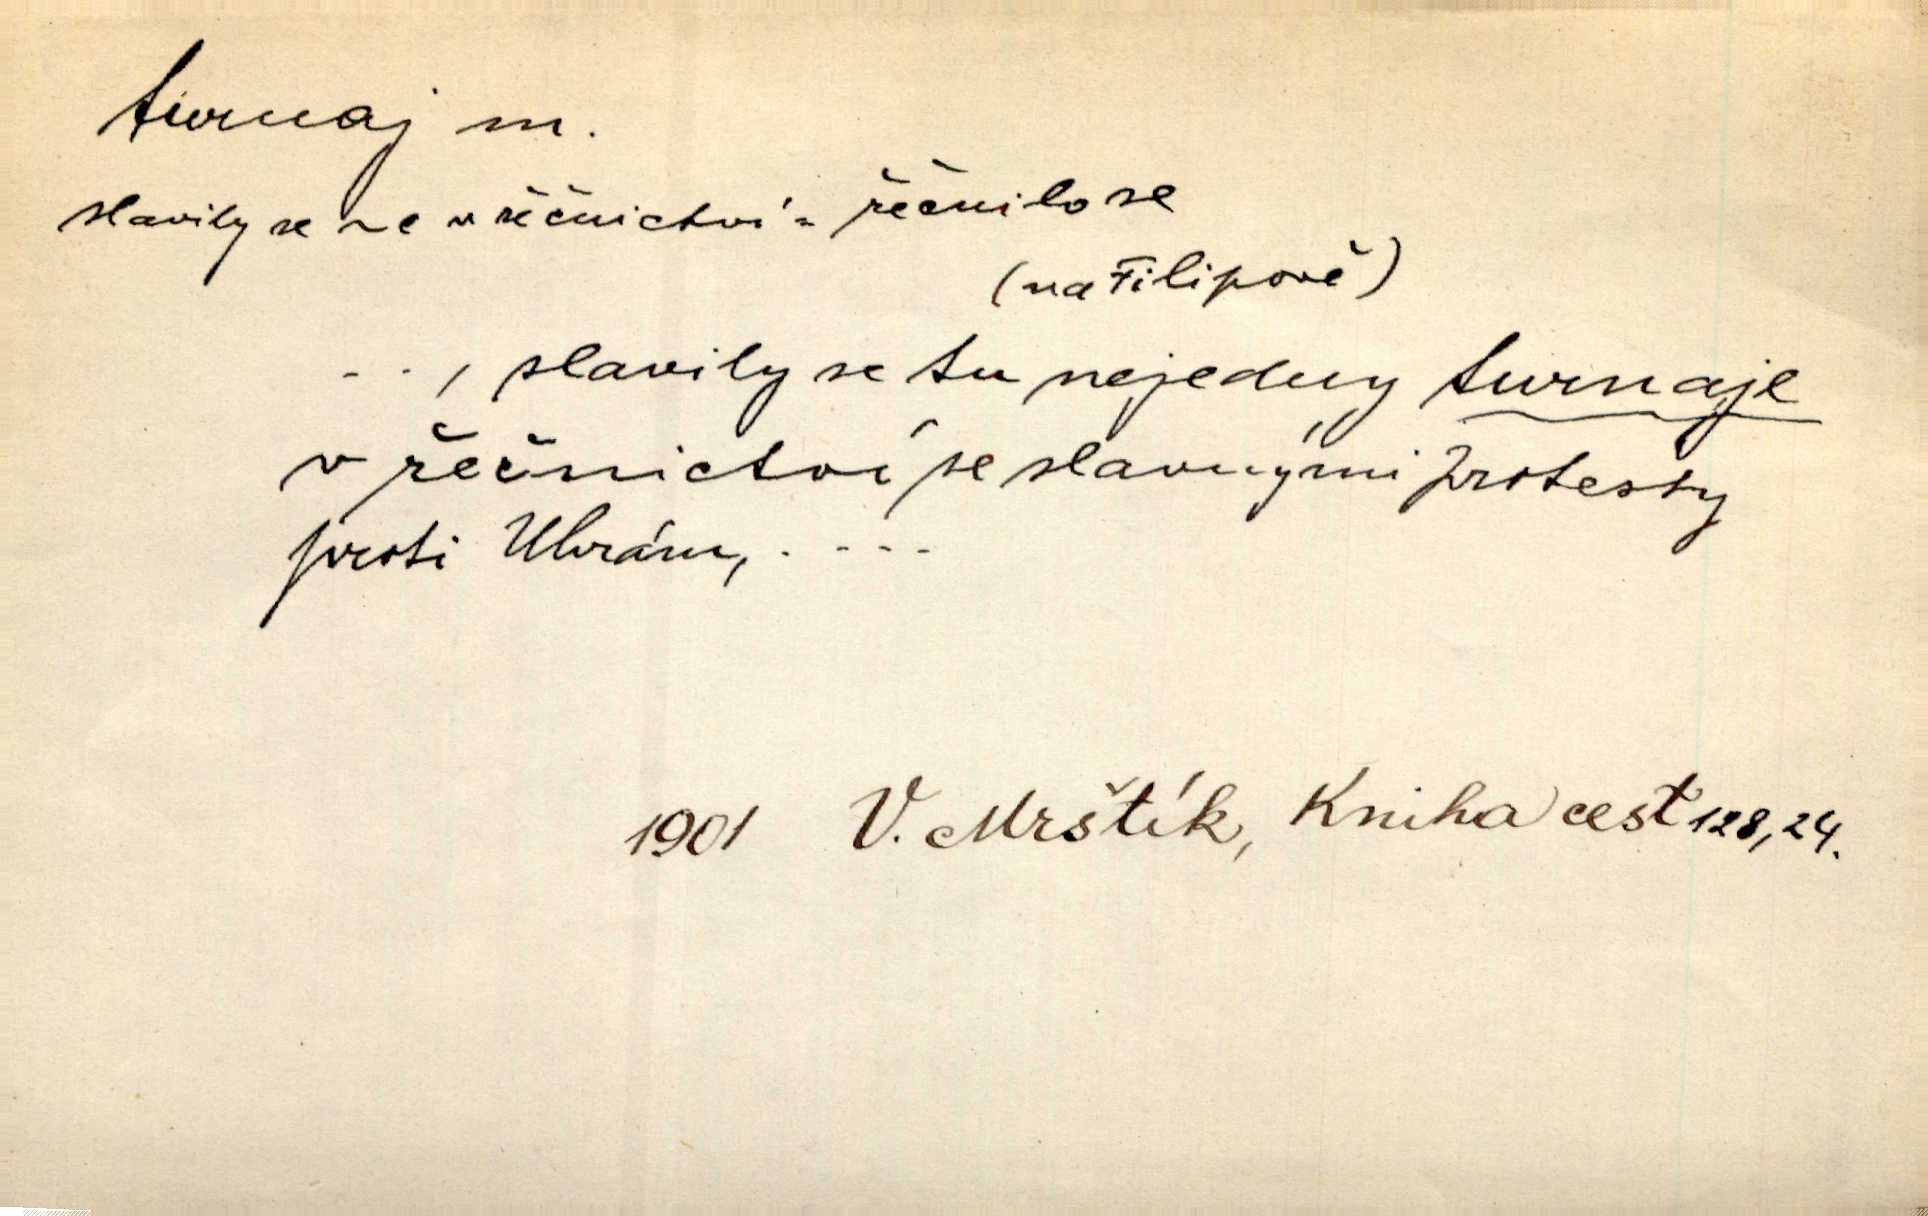 turnaj m.
slavily se ~e v řečnictví = řečnilo se
(na Filipově)
. . , slavily se tu nejedny turnaje
v řečnictví se slavnými protesty
proti Uhrám, . - - -
1901 V. Mrštík, Kniha cest 128, 24.